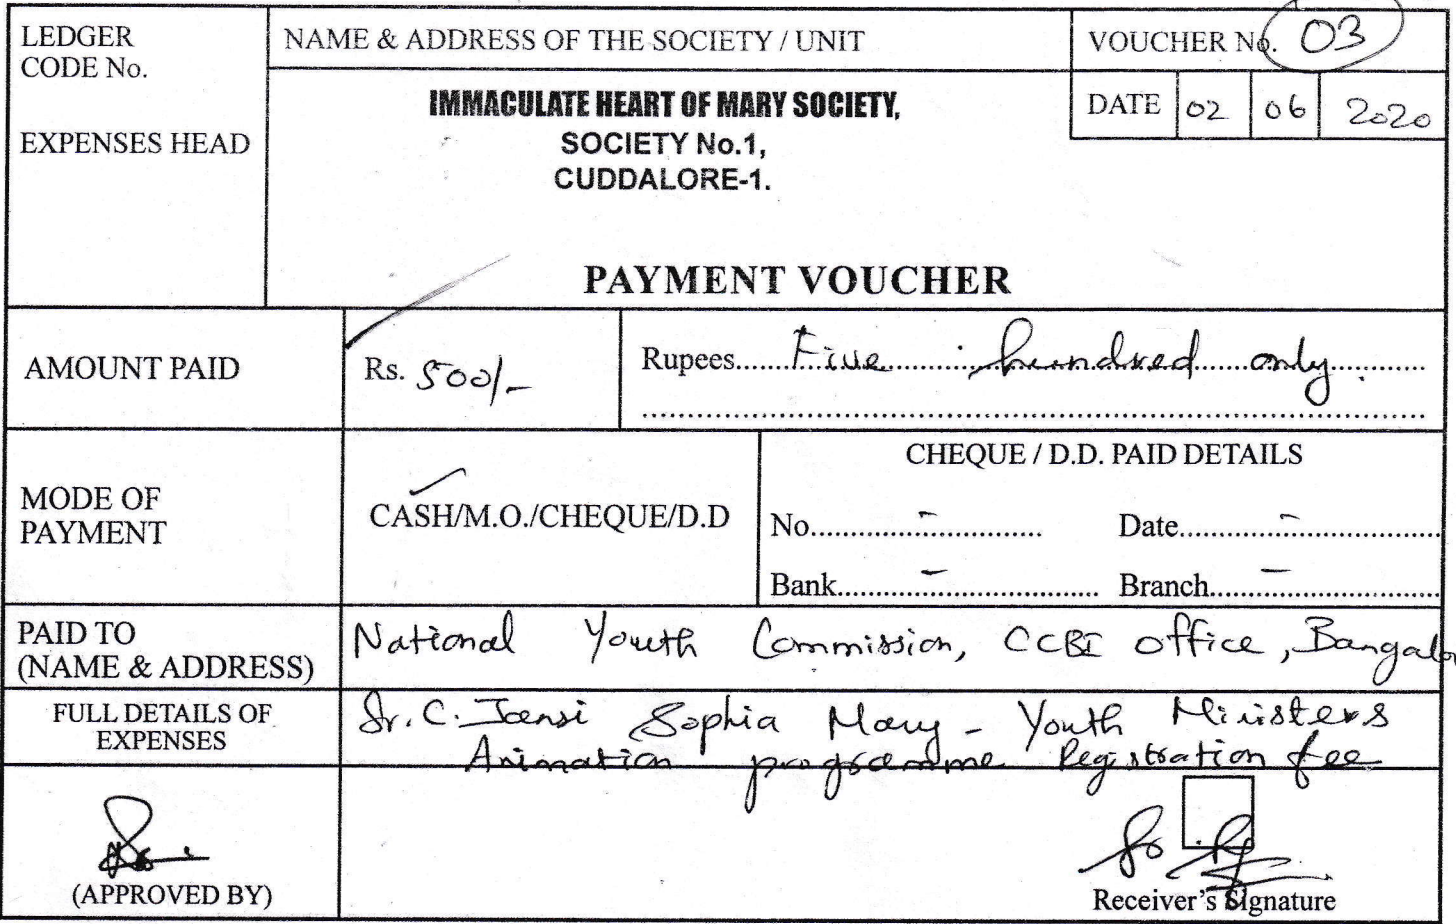 LEDGER
CODE No.
EXPENSES HEAD
NAME & ADDRESS OF THE SOCIETY / UNIT
IMMACULATE HEART OF MARY SOCIETY,
SOCIETY No.1,
CUDDALORE-1.
VOUCHER No. 03
DATE 02 06 2020
PAYMENT VOUCHER
AMOUNT PAID
Rs. 500/-
Rupees.....Five hundred only.
MODE OF
PAYMENT
CASH/M.O./CHEQUE/D.D
CHEQUE / D.D. PAID DETAILS
No.....-..... Date.....-.....
Bank.....-..... Branch.....-.....
PAID TO
(NAME & ADDRESS)
National Youth Commission, CCBI office, Bangalo
FULL DETAILS OF
EXPENSES
Sr. C. Jansi Sophia Mary - Youth Ministers
Animation programme Registration fee
(APPROVED BY)
Receiver's Signature